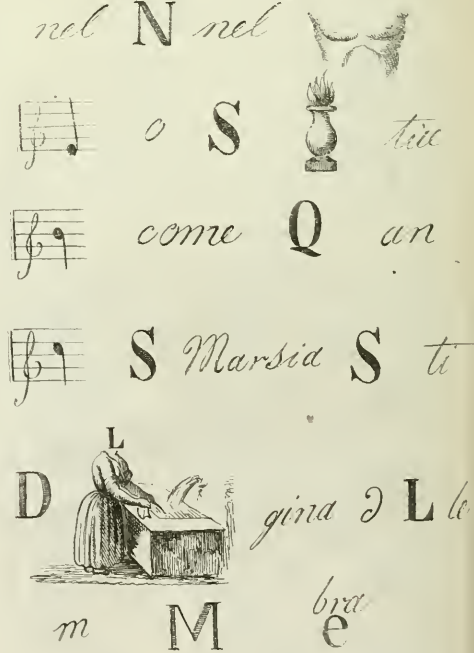 nel N nel
o S tue
come Q an
S Marsia S ti
L
D gina d L le
bra
m M e